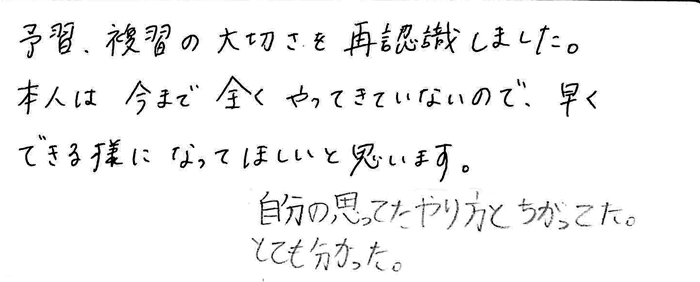 予習、複習の大切さを再認識しました。
本人は今まで全くやってきていないので、早く
できる様になってほしいと思います。
自分の思ってたやり方とちがってた。
とても分かった。